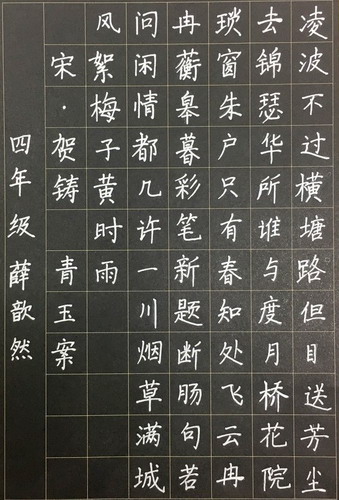 凌波不过横塘路但目送芳尘
去锦瑟华所谁与度月桥花院
琐窗朱户只有春知处飞云冉
冉蘅皋暮彩笔新题断肠句若
问闲情都几许一川烟草满城
风絮梅子黄时雨
宋·贺铸 青玉案
四年级 薛歆然